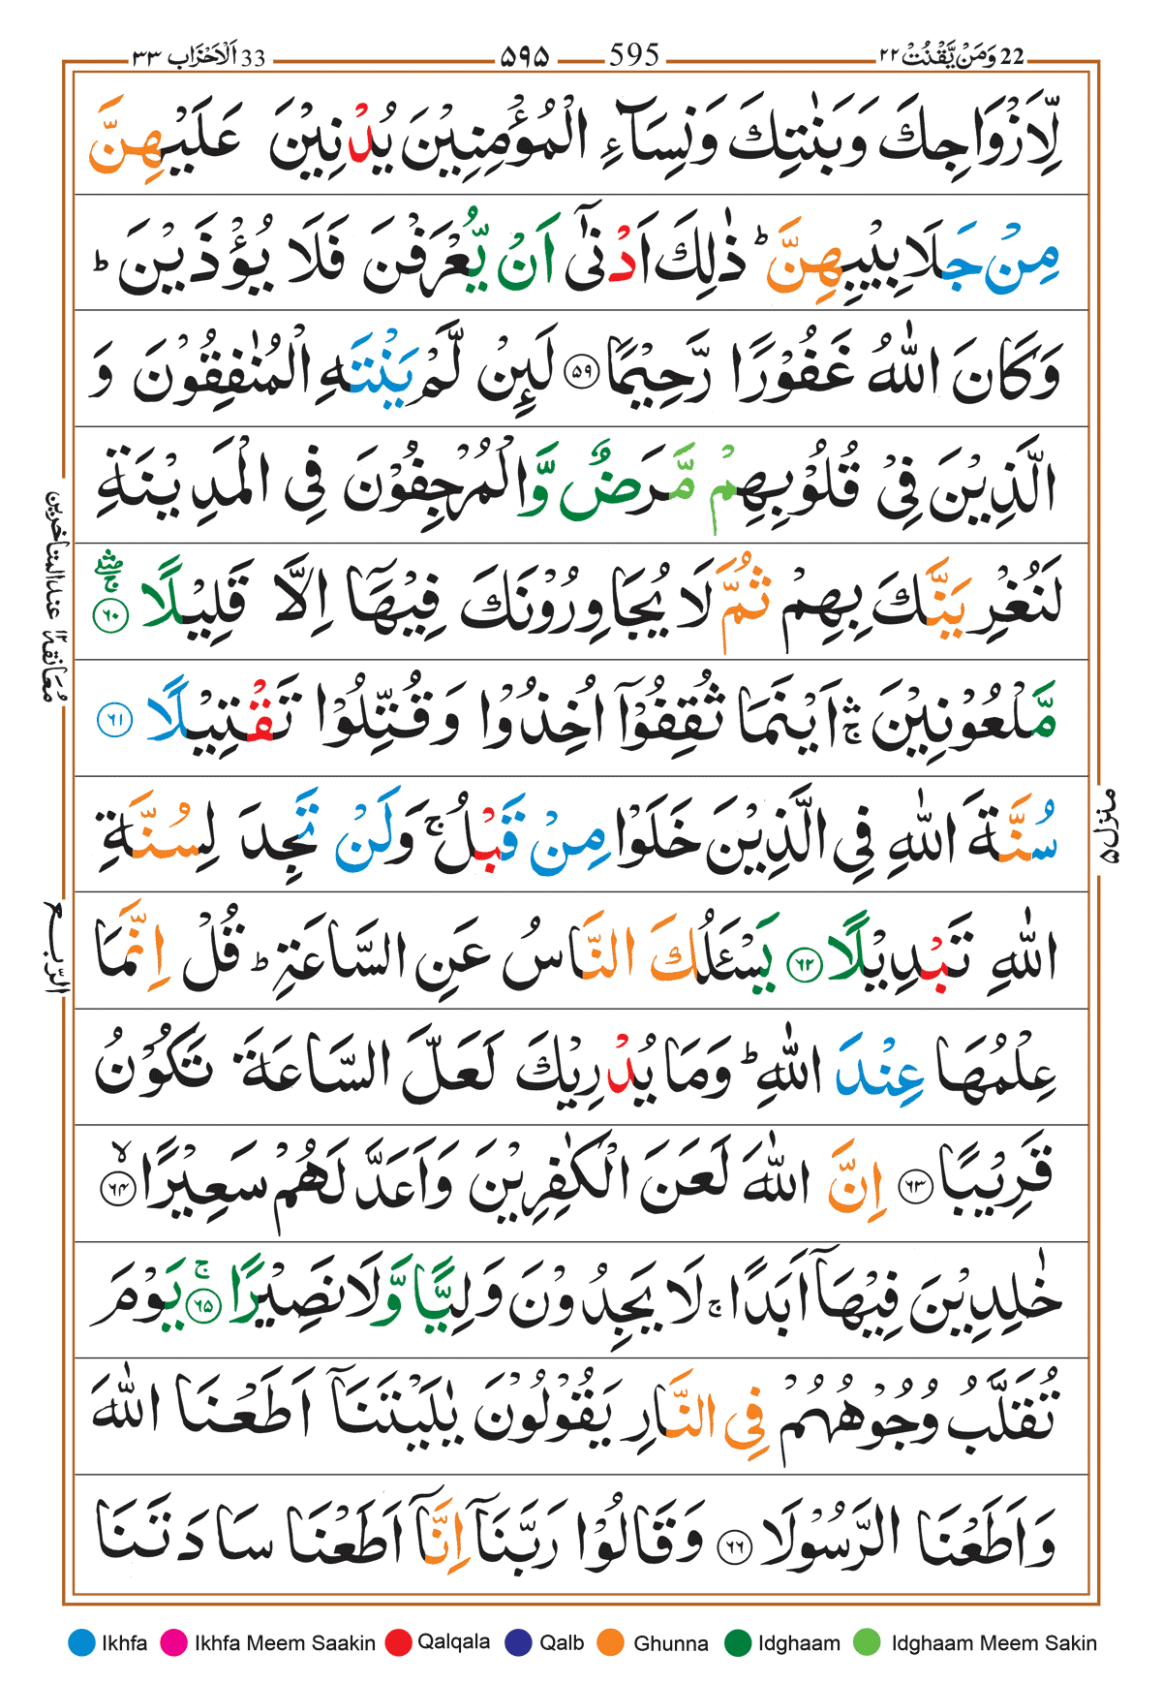 22 وَمَنْ يَّقْنُتْ ٢٢ 595 ٥٩٥ 33 اَلْاَحْزَاب ٣٣
لِّاَزْوَاجِكَ وَبَنٰتِكَ وَنِسَآءِ الْمُؤْمِنِيْنَ يُدْنِيْنَ عَلَيْهِنَّ
مِنْ جَلَابِيْبِهِنَّ ؕ ذٰلِكَ اَدْنٰۤى اَنْ يُّعْرَفْنَ فَلَا يُؤْذَيْنَ ؕ
وَكَانَ اللّٰهُ غَفُوْرًا رَّحِيْمًا ﴿٥٩﴾ لَىِٕنْ لَّمْ يَنْتَهِ الْمُنٰفِقُوْنَ وَ
الَّذِيْنَ فِىْ قُلُوْبِهِمْ مَّرَضٌ وَّالْمُرْجِفُوْنَ فِى الْمَدِيْنَةِ
لَنُغْرِيَنَّكَ بِهِمْ ثُمَّ لَا يُجَاوِرُوْنَكَ فِيْهَاۤ اِلَّا قَلِيْلًا ﴿٦٠﴾
مَّلْعُوْنِيْنَ ۛۚ اَيْنَمَا ثُقِفُوْۤا اُخِذُوْا وَقُتِّلُوْا تَقْتِيْلًا ﴿٦١﴾
سُنَّةَ اللّٰهِ فِى الَّذِيْنَ خَلَوْا مِنْ قَبْلُ ۚ وَلَنْ تَجِدَ لِسُنَّةِ
اللّٰهِ تَبْدِيْلًا ﴿٦٢﴾ يَسْـَٔلُكَ النَّاسُ عَنِ السَّاعَةِ ؕ قُلْ اِنَّمَا
عِلْمُهَا عِنْدَ اللّٰهِ ؕ وَمَا يُدْرِيْكَ لَعَلَّ السَّاعَةَ تَكُوْنُ
قَرِيْبًا ﴿٦٣﴾ اِنَّ اللّٰهَ لَعَنَ الْكٰفِرِيْنَ وَاَعَدَّ لَهُمْ سَعِيْرًا ۙ﴿٦٤﴾
خٰلِدِيْنَ فِيْهَاۤ اَبَدًا ۚ لَا يَجِدُوْنَ وَلِيًّا وَّلَا نَصِيْرًا ۚ﴿٦٥﴾ يَوْمَ
تُقَلَّبُ وُجُوْهُهُمْ فِى النَّارِ يَقُوْلُوْنَ يٰلَيْتَنَاۤ اَطَعْنَا اللّٰهَ
وَاَطَعْنَا الرَّسُوْلَا ﴿٦٦﴾ وَقَالُوْا رَبَّنَاۤ اِنَّاۤ اَطَعْنَا سَادَتَنَا
مُعَانقة ١٢ عند المتاخرين
الرّبع
منزل ٥
Ikhfa Ikhfa Meem Saakin Qalqala Qalb Ghunna Idghaam Idghaam Meem Sakin